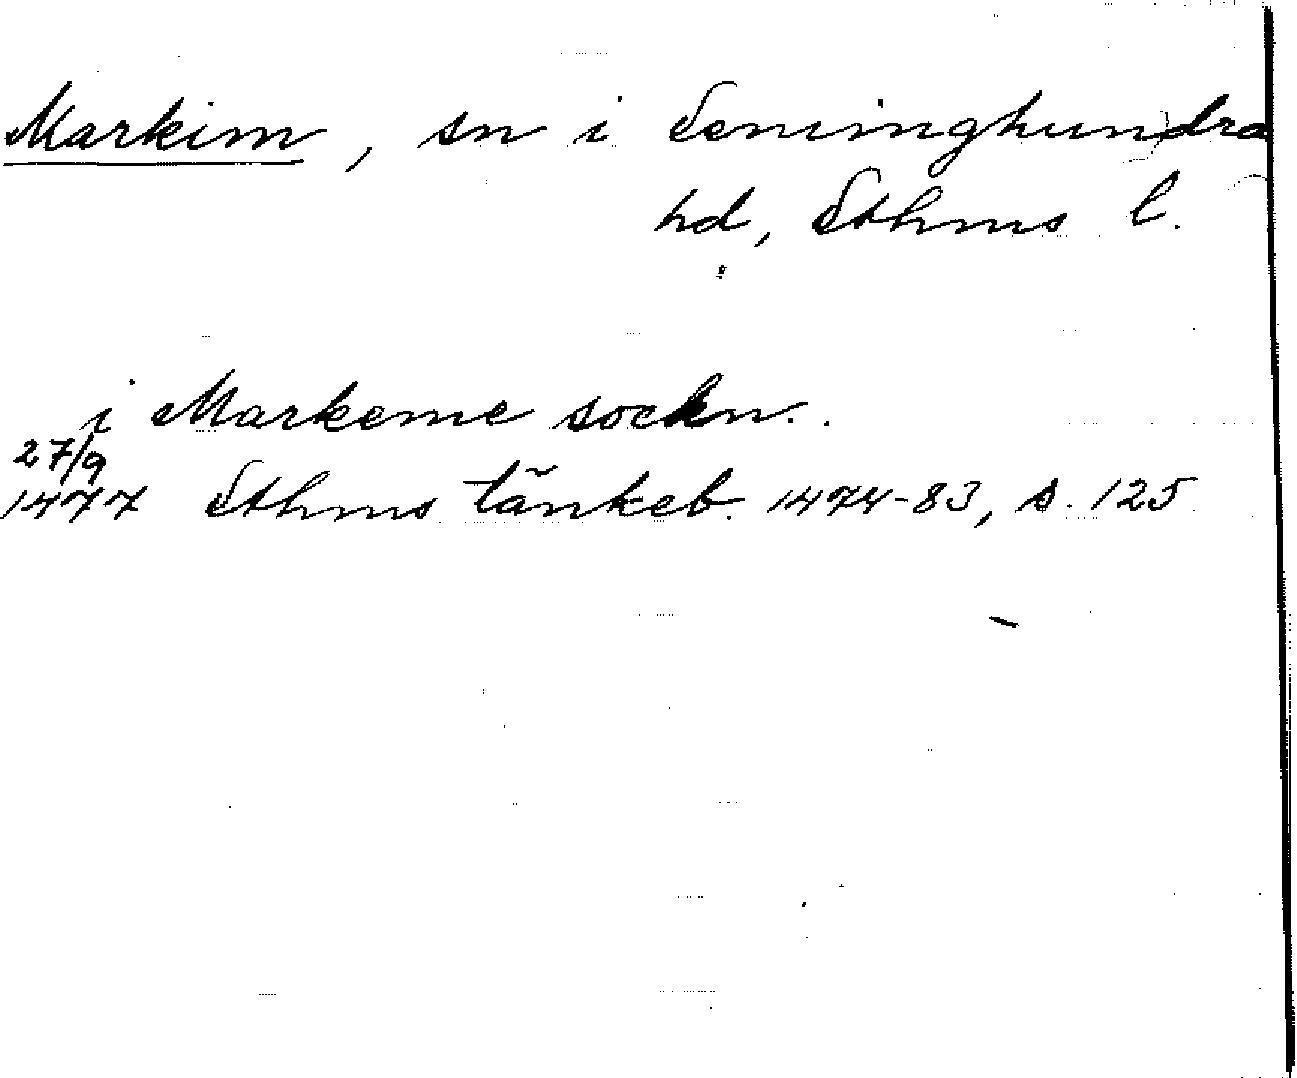 Markim, sn i Seminghundra
hd, Sthms l.
i Markeme sockn.
27/9
1477 Sthms tänkeb. 1474-83, s. 125